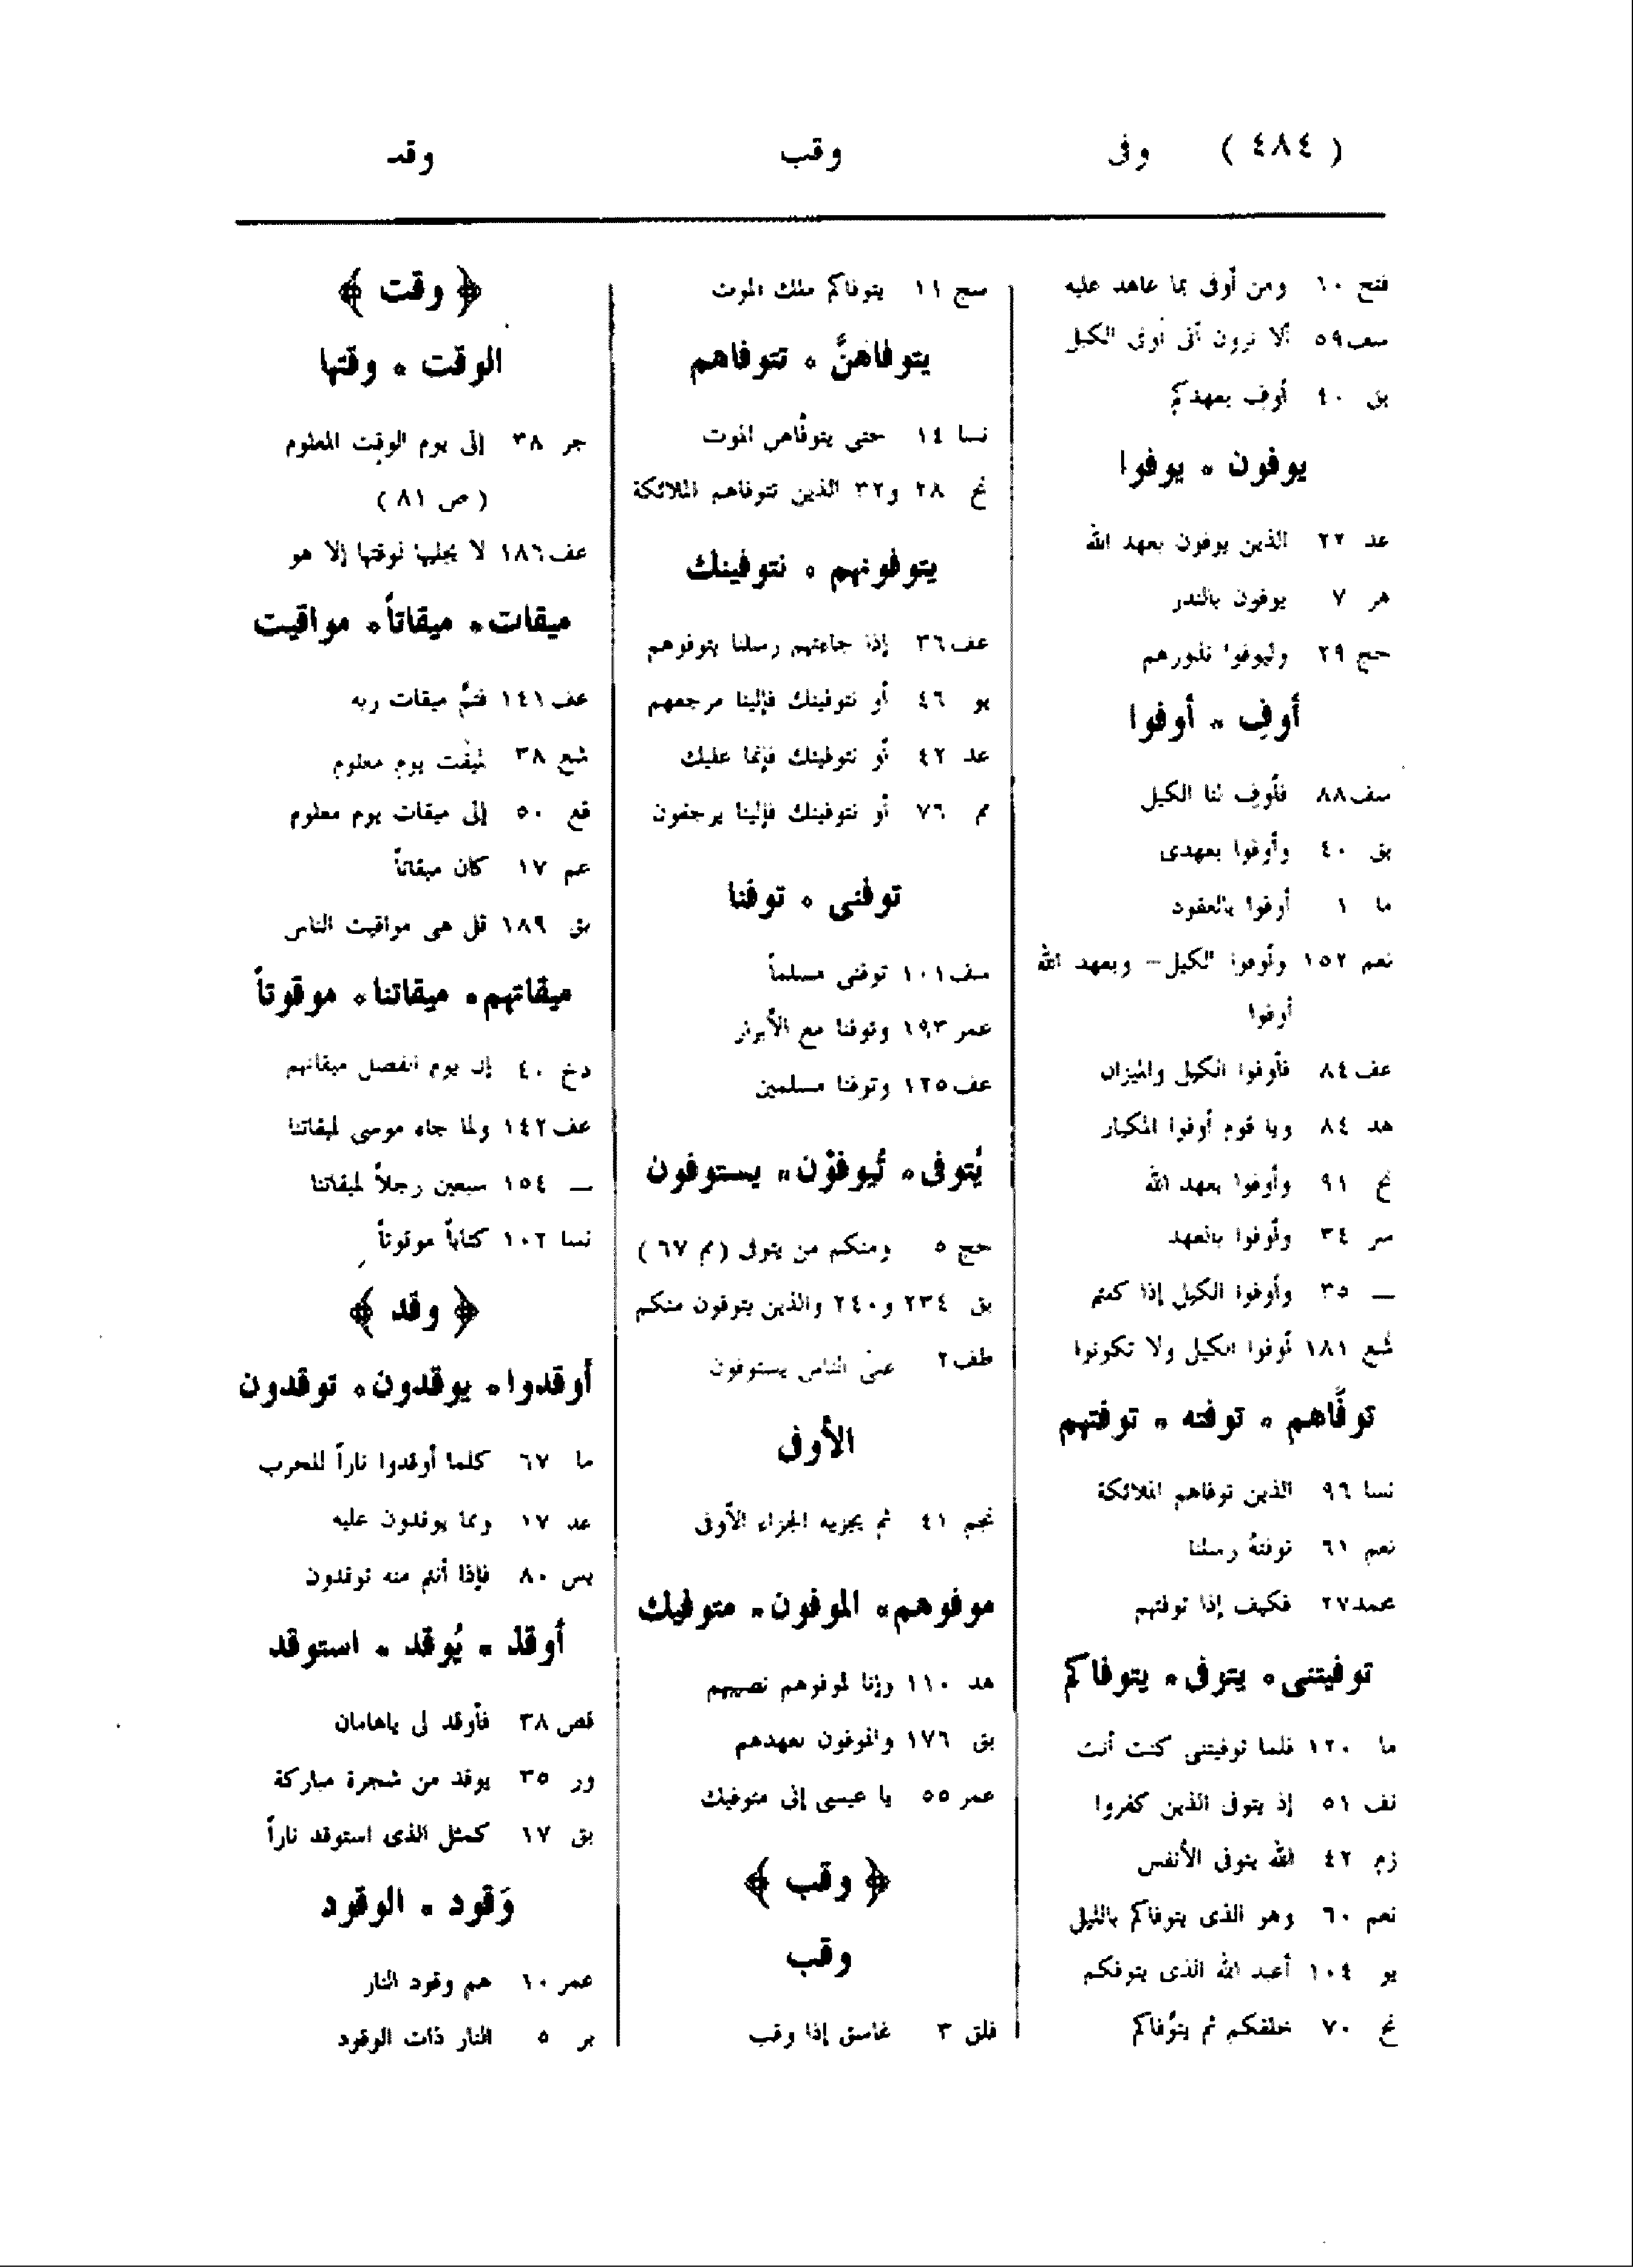 ( ٤٨٤ ) وفى وقب وقد
فتح ١٠ ومن أوفى بما عاهد عليه
سف ٥٩ ألا ترون أنى أوفى الكيل
بق ٤٠ أوف بعهدكم
يوفون * يوفوا
عد ٢٢ الذين يوفون بعهد الله
هر ٧ يوفون بالنذر
حج ٢٩ وليوفوا نذورهم
أوفِ * أوفوا
سف ٨٨ فأوف لنا الكيل
بق ٤٠ وأوفوا بعهدى
ما ١ أوفوا بالعقود
نعم ١٥٢ وأوفوا الكيل – وبعهد الله
أوفوا
عف ٨٤ فأوفوا الكيل والميزان
هد ٨٤ ويا قوم أوفوا المكيار
نح ٩١ وأوفوا بعهد الله
سر ٣٤ وأوفوا بالعهد
— ٣٥ وأوفوا الكيل إذا كلتم
شع ١٨١ أوفوا الكيل ولا تكونوا
توفَّاهم * توفته * توفتهم
نسا ٩٦ الذين توفاهم الملائكة
نعم ٦١ توفتهُ رسلنا
محمد ٢٧ فكيف إذا توفتهم
توفيتنى * يتوفى * يتوفاكم
ما ١٢٠ فلما توفيتنى كنت أنت
نف ٥١ إذ يتوفى الذين كفروا
زم ٤٢ الله يتوفى الأنفس
نعم ٦٠ وهو الذى يتوفاكم بالليل
يو ١٠٤ أعبد الله الذى يتوفكم
نح ٧٠ خلقكم ثم يتوَّفاكم
سج ١١ يتوفاكم ملك الموت
يتوفاهنَّ * تتوفاهم
نسا ١٤ حتى يتوفَّاهن الموت
نح ٢٨ و٣٢ الذين تتوفاهم الملائكة
يتوفونهم * نتوفينك
عف ٣٦ إذا جاءتهم رسلنا يتوفوهم
يو ٤٦ أو نتوفينك فإلينا مرجعهم
عد ٤٢ أو نتوفينك فإنما عليك
مم ٧٦ أو نتوفينك فإلينا يرجعون
توفنى * توفنا
سف ١٠١ توفنى مسلماً
عمر ١٩٣ وتوفنا مع الأبرار
عف ١٢٥ وتوفنا مسلمين
يُتوفى * يُيوفوْن * يستوفون
حج ٥ ومنكم من يتوفى ( مم ٦٧ )
بق ٢٣٤ و٢٤٠ والذين يتوفون منكم
طف ٢ على الناس يستوفون
الأوفى
نجم ٤١ ثم يجزيه الجزاء الأوفى
موفوهم * الموفون * متوفيك
هد ١١٠ وإنا لموفوهم نصيبهم
بق ١٧٦ والموفون بعهدهم
عمر ٥٥ يا عيسى إنى متوفيك
﴿ وقب ﴾
وقب
فلق ٣ غاسق إذا وقب
﴿ وقت ﴾
الوقت * وقتها
جر ٣٨ إلى يوم الوقت المعلوم
( ص ٨١ )
عف ١٨٦ لا يجليها لوقتها إلا هو
ميقات * ميقاتاً * مواقيت
عف ١٤١ فتمَّ ميقات ربه
شع ٣٨ لميقت يوم معلوم
قع ٥٠ إلى ميقات يوم معلوم
عم ١٧ كان ميقاتاً
بق ١٨٩ قل هى مواقيت الناس
ميقاتهم * ميقاتنا * موقوتاً
دخ ٤٠ إن يوم الفصل ميقاتهم
عف ١٤٢ ولما جاء موسى لميقاتنا
— ١٥٤ سبعين رجلاً لميقاتنا
نسا ١٠٢ كتاباً موقوتاً
﴿ وقد ﴾
أوقدوا * يوقدون * توقدون
ما ٦٧ كلما أوقدوا ناراً للحرب
عد ١٧ ومما يوقدون عليه
يس ٨٠ فإذا أنتم منه توقدون
أوقد * يُوقد * استوقد
قص ٣٨ فأوقد لى ياهامان
ور ٣٥ يوقد من شجرة مباركة
بق ١٧ كمثل الذى استوقد ناراً
وَقود * الوقود
عمر ١٠ هم وقود النار
بر ٥ النار ذات الوقود